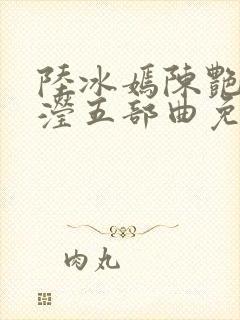 陸冰嫣陳艷
瀅五部曲免
肉丸